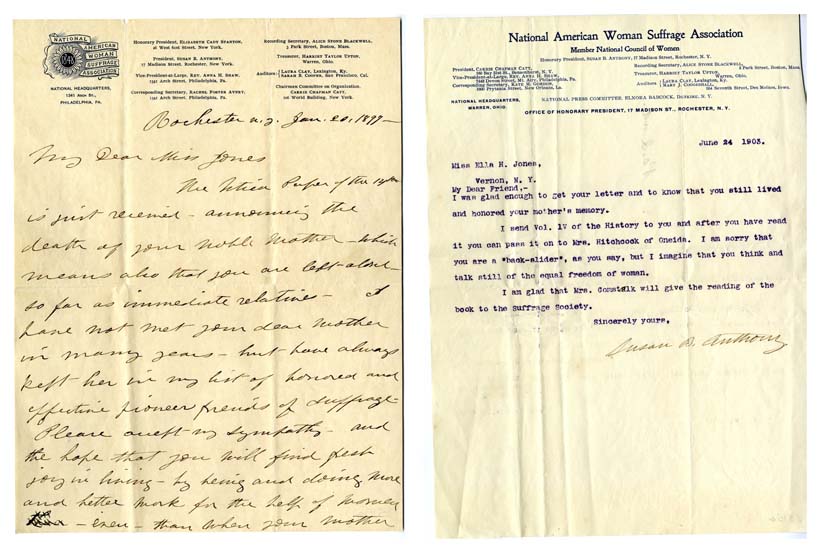 NATIONAL
AMERICAN
WOMAN
SUFFRAGE
ASSOCIATION
1848
NATIONAL HEADQUARTERS,
1341 ARCH ST.,
PHILADELPHIA, PA.
Honorary President, ELIZABETH CADY STANTON,
26 West 61st Street, New York.
President, SUSAN B. ANTHONY,
17 Madison Street, Rochester, New York.
Vice-President-at-Large, REV. ANNA H. SHAW,
1341 Arch Street, Philadelphia, Pa.
Corresponding Secretary, RACHEL FOSTER AVERY,
1341 Arch Street, Philadelphia, Pa.
Recording Secretary, ALICE STONE BLACKWELL,
3 Park Street, Boston, Mass.
Treasurer, HARRIET TAYLOR UPTON,
Warren, Ohio.
Auditors: LAURA CLAY, Lexington, Ky.
SARAH B. COOPER, San Francisco, Cal.
Chairman Committee on Organization.
CARRIE CHAPMAN CATT,
106 World Building, New York.
Rochester N.Y. Jan. 20, 1899 -
My Dear Miss Jones
The Utica Paper of the
is just received - announcing the
death of your noble mother - which
means also that you are left alone -
so far as immediate relatives - I
have not met your dear mother
in many years - but have always
kept her in my list of honored and
effective pioneer friends of suffrage -
Please accept my sympathy - and
the hope that you will find fresh
joy in living - by being and doing more
and better work for the help of women
- even - than when your mother
National American Woman Suffrage Association
Member National Council of Women
Honorary President, SUSAN B. ANTHONY, 17 Madison Street, Rochester, N. Y.
President, CARRIE CHAPMAN CATT,
Vice-President-at-Large, REV. ANNA H. SHAW,
Mt. Airy, Philadelphia, Pa.
Corresponding Secretary, KATE M. GORDON,
1800 Prytania Street, New Orleans, La.
Recording Secretary, ALICE STONE BLACKWELL,
3 Park Street, Boston, Mass.
Treasurer, HARRIET TAYLOR UPTON,
Warren, Ohio.
Auditors LAURA CLAY, Lexington, Ky.
MARY J. COGGESHALL,
Seventh Street, Des Moines, Iowa.
NATIONAL HEADQUARTERS,
WARREN, OHIO.
NATIONAL PRESS COMMITTEE, ELNORA BABCOCK, DUNKIRK, N. Y.
OFFICE OF HONORARY PRESIDENT, 17 MADISON ST., ROCHESTER, N. Y.
June 24 1903.
Miss Ella H. Jones,
Vernon, N. Y.
My Dear Friend,-
I was glad enough to get your letter and to know that you still lived
and honored your mother's memory.
I send Vol. IV of the History to you and after you have read
it you can pass it on to Mrs. Hitchcock of Oneida. I am sorry that
you are a "back-slider", as you say, but I imagine that you think and
talk still of the equal freedom of woman.
I am glad that Mrs. Comstalk will give the reading of the
book to the Suffrage Society.
Sincerely yours,
Susan B. Anthony